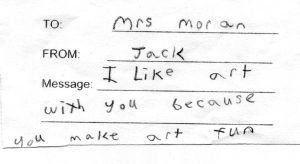 TO: Mrs moran
FROM: Jack
Message: I Like art
with you because
you make art fun